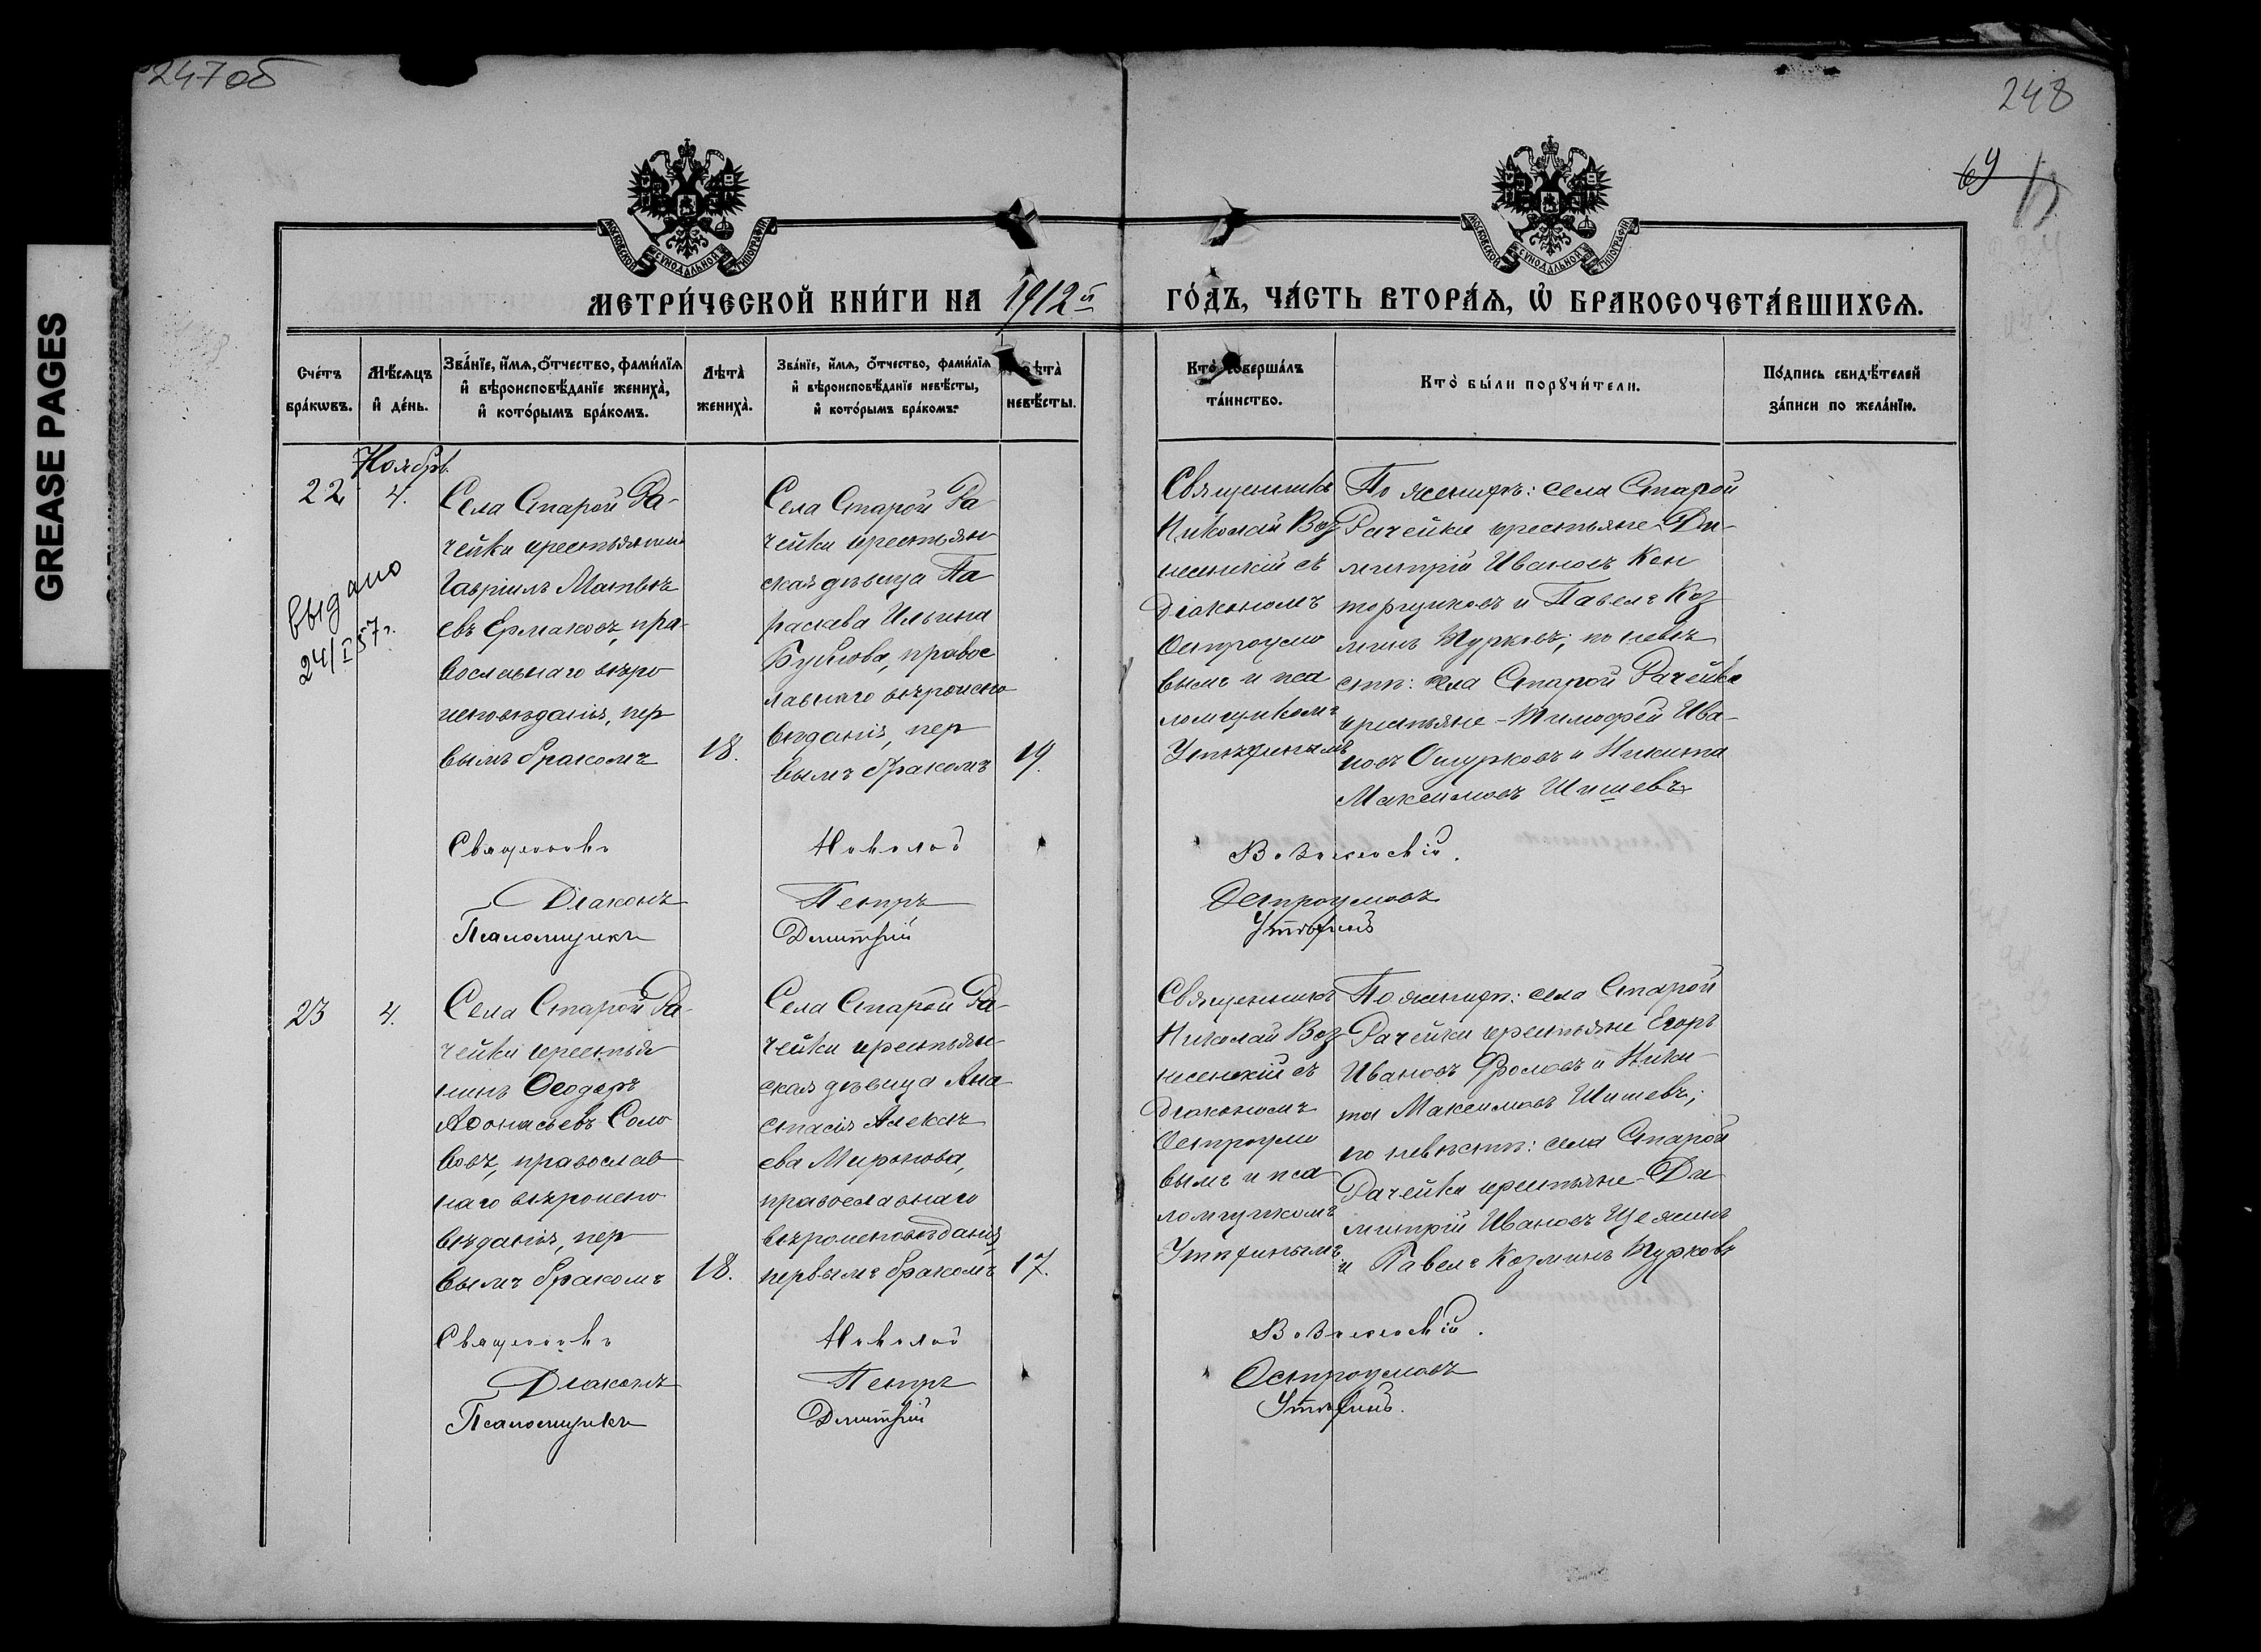 247об
248
69
GREASE PAGES
МОСКОВСКОЙ СѴНОДАЛЬНОЙ ТИПОГРАФІИ
МОСКОВСКОЙ СѴНОДАЛЬНОЙ ТИПОГРАФІИ
МЕТРИ́ЧЕСКОЙ КНИ́ГИ НА 1912й ГО́ДЪ, ЧА́СТЬ ВТОРА́Ѧ, Ѽ БРАКОСОЧЕТА́ВШИХСѦ.
Сче́тъ
бра́кωвъ.
Мѣ́сяцъ
и҆ де́нь.
Зва́нїе, и҆́мѧ, ѻ҆́тчество, фами́лїѧ
и҆ вѣроисповѣ́данїе жениха̀,
и҆ кото́рымъ бра́комъ.
Лѣта̀
жениха̀.
Зва́нїе, и҆́мѧ, ѻ҆́тчество, фами́лїѧ
и҆ вѣроисповѣ́данїе невѣ́сты,
и҆ кото́рымъ бра́комъ.
Лѣта̀
невѣ́сты.
Кто̀ соверша́лъ
та́инство.
Кто̀ бы́ли порꙋчи́тели.
По́дпись свидѣ́телей
за́писи по жела́нїю.
Ноябрь.
22
4.
выдано
24/I 57г.
Села Старой Ра-
чейки крестьянинъ
Гавріилъ Матвѣ
евъ Ермаковъ, пра-
вославнаго вѣро
исповѣданія, пер
вымъ бракомъ
18.
Села Старой Ра
чейки крестьян
ская дѣвица Па
раскева Ильина
православ
лавнаго вѣроиспо
вѣданія, пер
вымъ бракомъ
19.
Священникъ
Николай Воз
несенскій съ
діакономъ
Остроумо
вымъ и пса
ломщикомъ
Утѣхинымъ
По женихѣ: села Старой
Рачейки крестьяне Ди-
митрій Ивановъ Кон
торщиковъ и Павелъ Коз
минъ Турковъ; по невѣ
стѣ: села Старой Рачейки
крестьяне - Тимофей Ива-
новъ Ошурковъ и Никита
Максимовъ Шишевъ
Священникъ Николай Вознесенскій.
Діаконъ Петръ Остроумовъ
Псаломщикъ Димитрій Утѣхинъ
23
4.
Села Старой Ра-
чейки крестья
нинъ Ѳеодоръ
Аѳонасьевъ Соло
вовъ, православ
наго вѣроиспо
вѣданія, пер
вымъ бракомъ
18.
Села Старой Ра-
чейки крестьян-
ская дѣвица Ана
стасія Алексѣ
ева Миронова,
православнаго
вѣроисповѣданія,
первымъ бракомъ
17.
Священникъ
Николай Воз
несенскій съ
діакономъ
Остроумо
вымъ и пса
ломщикомъ
Утѣхинымъ
По женихѣ: села Старой
Рачейки крестьяне Егоръ
Ивановъ Фроловъ и Ники-
та Максимовъ Шишевъ;
по невѣстѣ: села Старой
Рачейки крестьяне - Ди
митрій Ивановъ
и Павелъ Козминъ Турковъ
Священникъ Николай Вознесенскій.
Діаконъ Петръ Остроумовъ
Псаломщикъ Димитрій Утѣхинъ.